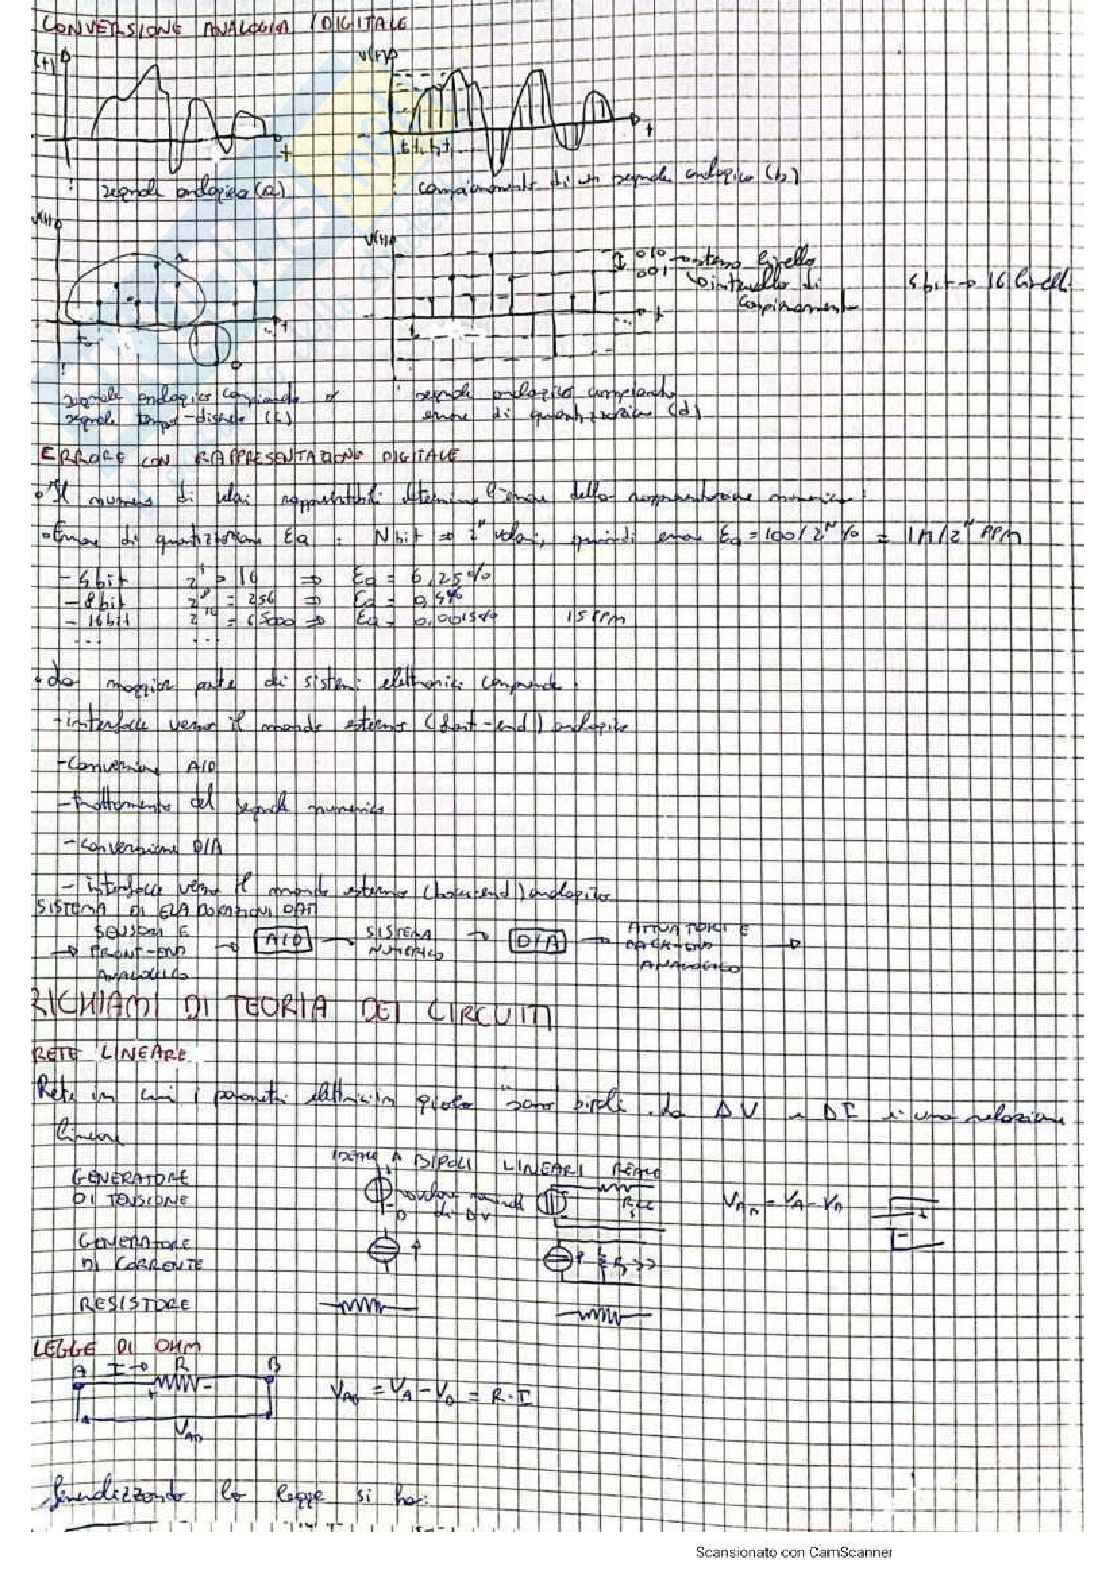 CONVERSIONE ANALOGIA / DIGITALE
V(t)
t
segnale analogico (a)
campionamento di un segnale analogico (b)
V(t)
V(t)
010
001
intervallo di
campionamento
4 bit → 16 livelli
segnale analogico campionato o
segnale tempo-discreto (c)
segnale analogico campionato
errore di quantizzazione (d)
ERRORE CON RAPPRESENTAZIONE DIGITALE
• Il numero di valori rappresentabili determina l'errore della rappresentazione numerica:
• Errore di quantizzazione EQ : N bit ⇒ 2^N valori, quindi errore EQ = 100/2^N % = 1M/2^N PPM
- 4 bit 2^4 = 16 ⇒ EQ = 6,25%
- 8 bit 2^8 = 256 ⇒ EQ = 0,4%
- 16 bit 2^16 = 65000 ⇒ EQ = 0,0015% 15 PPM
... ...
• La maggior parte di sistemi elettronici comprende:
- interfacce verso il mondo esterno (front-end) analogico
- Conversione A/D
- trattamento del segnale numerico
- conversione D/A
- interfacce verso il mondo esterno analogico
SISTEMA DI ELABORAZIONI DATI
→ SENSORI E FRONT-END ANALOGICO → A/D → SISTEMA NUMERICO → D/A → ATTUATORI E BACK-END ANALOGICO →
RICHIAMI DI TEORIA DEI CIRCUITI
RETE LINEARE
Rete in cui i parametri elettrici in sono bipoli ΔV e ΔI è una relazione
lineare
IDEALE BIPOLI LINEARI REALE
GENERATORE
DI TENSIONE
di ΔV
VAB = VA - VB
GENERATORE
DI CORRENTE
RESISTORE
LEGGE DI OHM
A I → R B
VAB = VA - VB = R·I
VAB
Generalizzando la legge si ha:
Scansionato con CamScanner